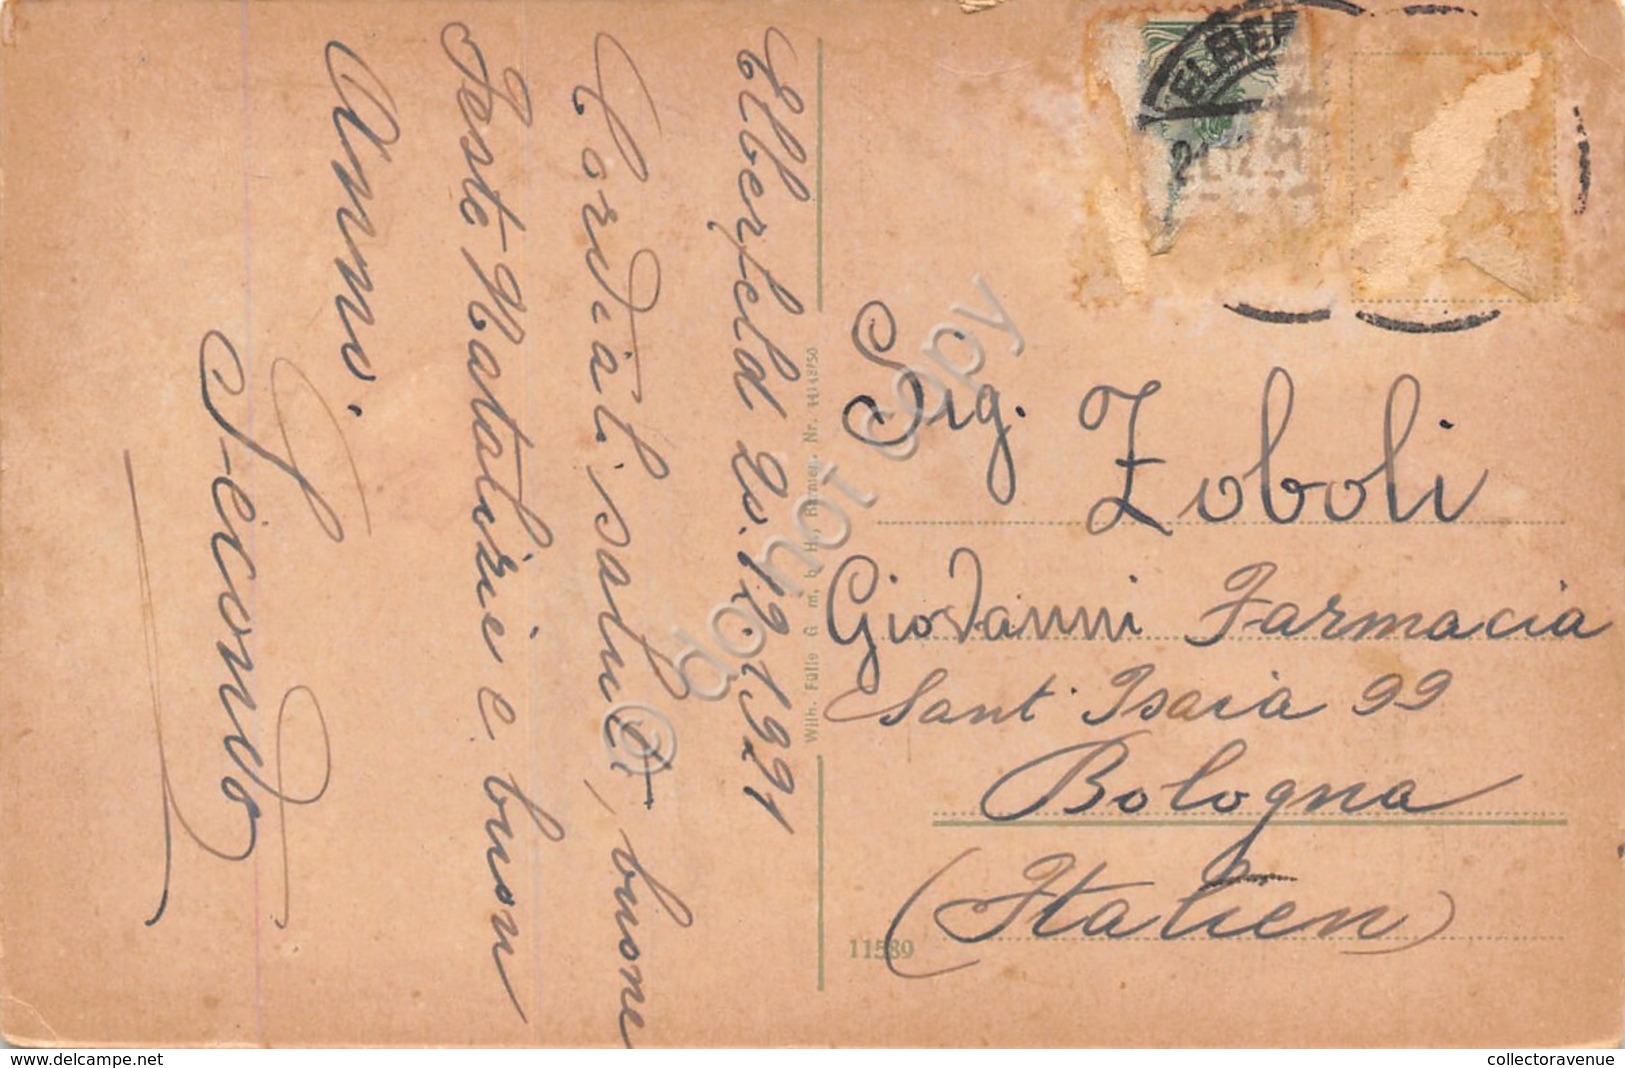 Elberfeld 20.12.1921
Cordiali saluti, buone
Feste Natalizie e buon
Anno.
Secondo
ELBERF
Sig. Zoboli
Giovanni Farmacia
Sant Isaia 99
Bologna
(Italien)
11589
Wilh. Fülle G. m. b. H., Barmen. Nr.
© do not copy
www.delcampe.net
collectoravenue